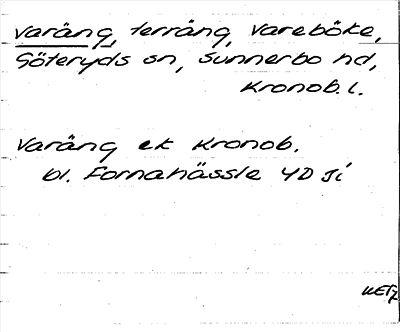 Varäng, terräng, Vareböke,
Göteryds sn, Sunnerbo hd,
Kronob. l.
Varäng ek Kronob.
bl. Fornahässle 4D Ji